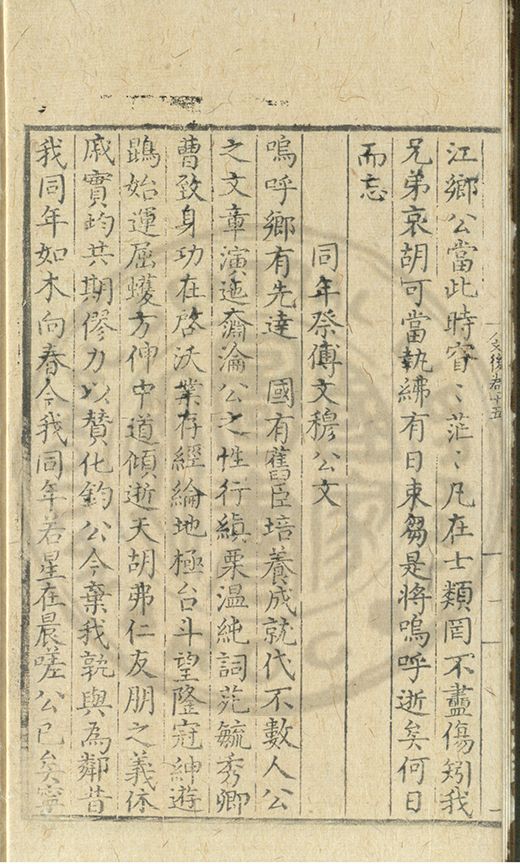 文後卷十五
江鄉公當此時窅〻茫〻凡在士類罔不盡傷矧我
兄弟哀胡可當執紼有日束芻是將嗚呼逝矣何日
而忘
同年祭傅文穆公文
嗚呼鄉有先達 國有舊臣培養成就代不數人公
之文章演迤奫淪公之性行縝栗温純詞苑毓秀卿
曹致身功在啓沃業存經綸地極台斗望隆冠紳遊
鵾始運屈蠖方伸中道傾逝天胡弗仁友朋之義休
戚實均共期僇力以贊化鈞公今棄我孰與為鄰昔
我同年如木向春今我同年若星在晨嗟公已矣寧